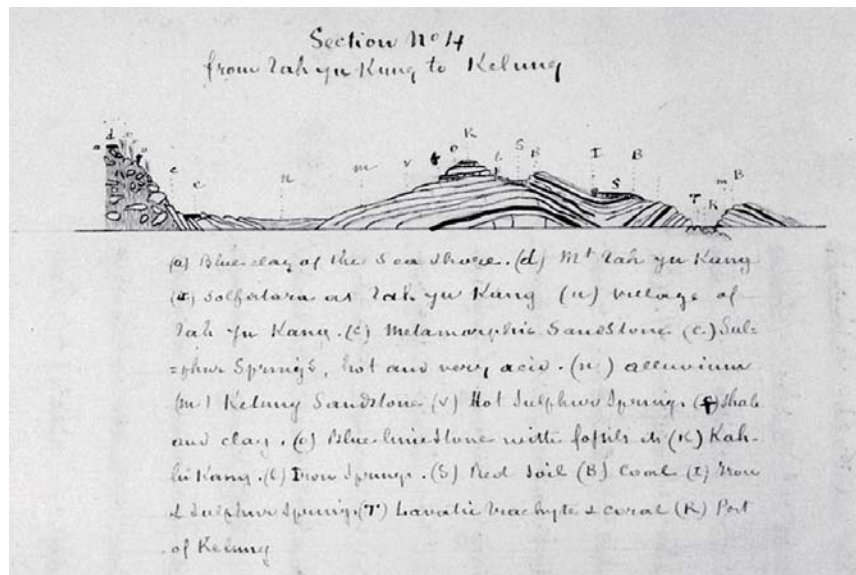 Section No 4
from Tah yu Kung to Kelung
a d e
c
c
n
m
v
f o K
l
S B
I
S
B
T
K
m B
(a) Blue clay of the Sea Shore. (d) Mt Tah yu Kung
Solfatara at Tah yu Kung (u) village of
Tah Yu Kang. (c) Metamorphic Sandstone (c.) Sul=
=phur Springs, hot and very acid. (n) alluvium
(m) Kelung Sandstone. (v) Hot Sulphur Springs. (f) Shale
and clay. (o) Blue limestone with fossils (K) Kah-
Kang. (l) Iron Springs. (S) Red Soil (B) Coal (I) Iron
& Sulphur Spring. (T) Lavatic trachyte & coral (K) Port
of Kelung